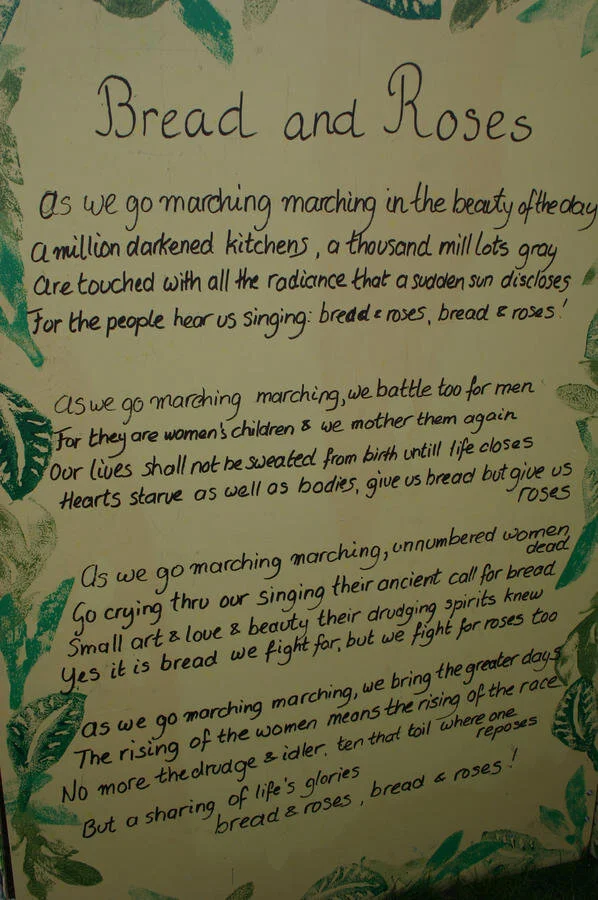 Bread and Roses
As we go marching marching in the beauty of the day
A million darkened kitchens, a thousand mill lots gray
Are touched with all the radiance that a sudden sun discloses
For the people hear us singing: bread & roses, bread & roses!
As we go marching marching, we battle too for men
For they are women's children & we mother them again
Our lives shall not be sweated from birth untill life closes
Hearts starve as well as bodies, give us bread but give us
roses
As we go marching marching, unnumbered women
dead
Go crying thru our singing their ancient call for bread
Small art & love & beauty their drudging spirits knew
Yes it is bread we fight for, but we fight for roses too
As we go marching marching, we bring the greater days
The rising of the women means the rising of the race
No more the drudge & idler. ten that toil where one
reposes
But a sharing of life's glories
bread & roses, bread & roses!